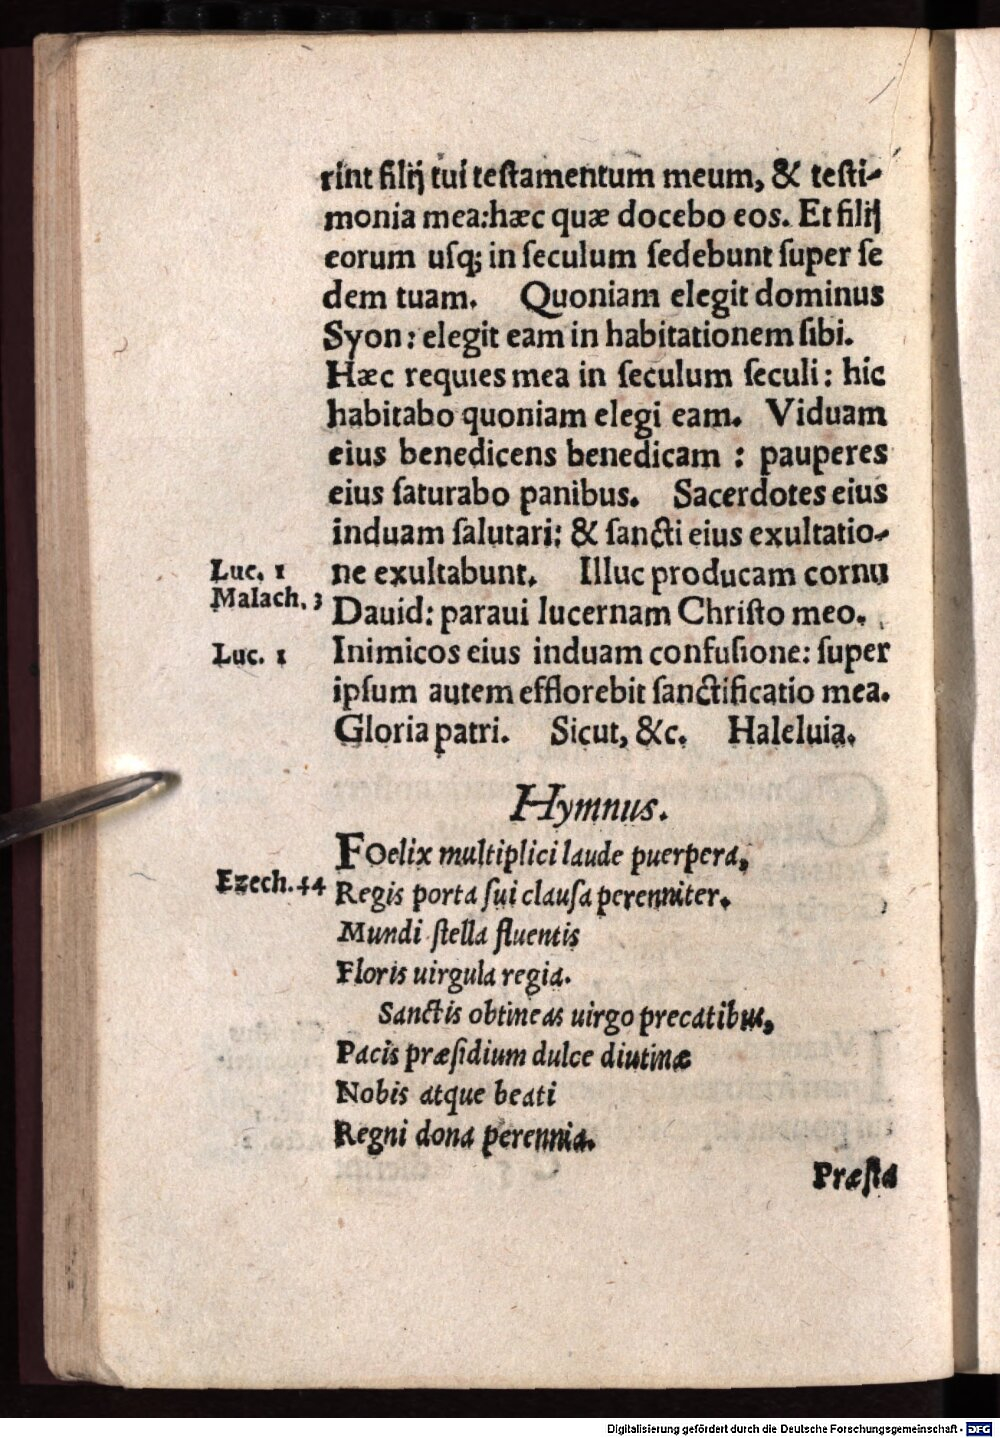 rint filij tui teſtamentum meum, & teſti-
monia mea:hæc quæ docebo eos. Et filij
eorum uſq; in ſeculum ſedebunt ſuper ſe
dem tuam. Quoniam elegit dominus
Syon: elegit eam in habitationem ſibi.
Hæc requies mea in ſeculum ſeculi: hic
habitabo quoniam elegi eam. Viduam
eius benedicens benedicam : pauperes
eius ſaturabo panibus. Sacerdotes eius
induam ſalutari: & ſancti eius exultatio-
Luc. 1 ne exultabunt. Illuc producam cornu
Malach. 3 Dauid: paraui lucernam Chriſto meo.
Luc. 1 Inimicos eius induam confuſione: ſuper
ipſum autem efflorebit ſanctificatio mea.
Gloria patri. Sicut, &c. Haleluia.
Hymnus.
FOelix multiplici laude puerpera,
Ezech. 44 Regis porta ſui clauſa perenniter.
Mundi ſtella fluentis
Floris uirgula regia.
Sanctis obtineas uirgo precatibus,
Pacis præſidium dulce diutinæ
Nobis atque beati
Regni dona perennia.
Præſta
Digitalisierung gefördert durch die Deutsche Forschungsgemeinschaft - DFG